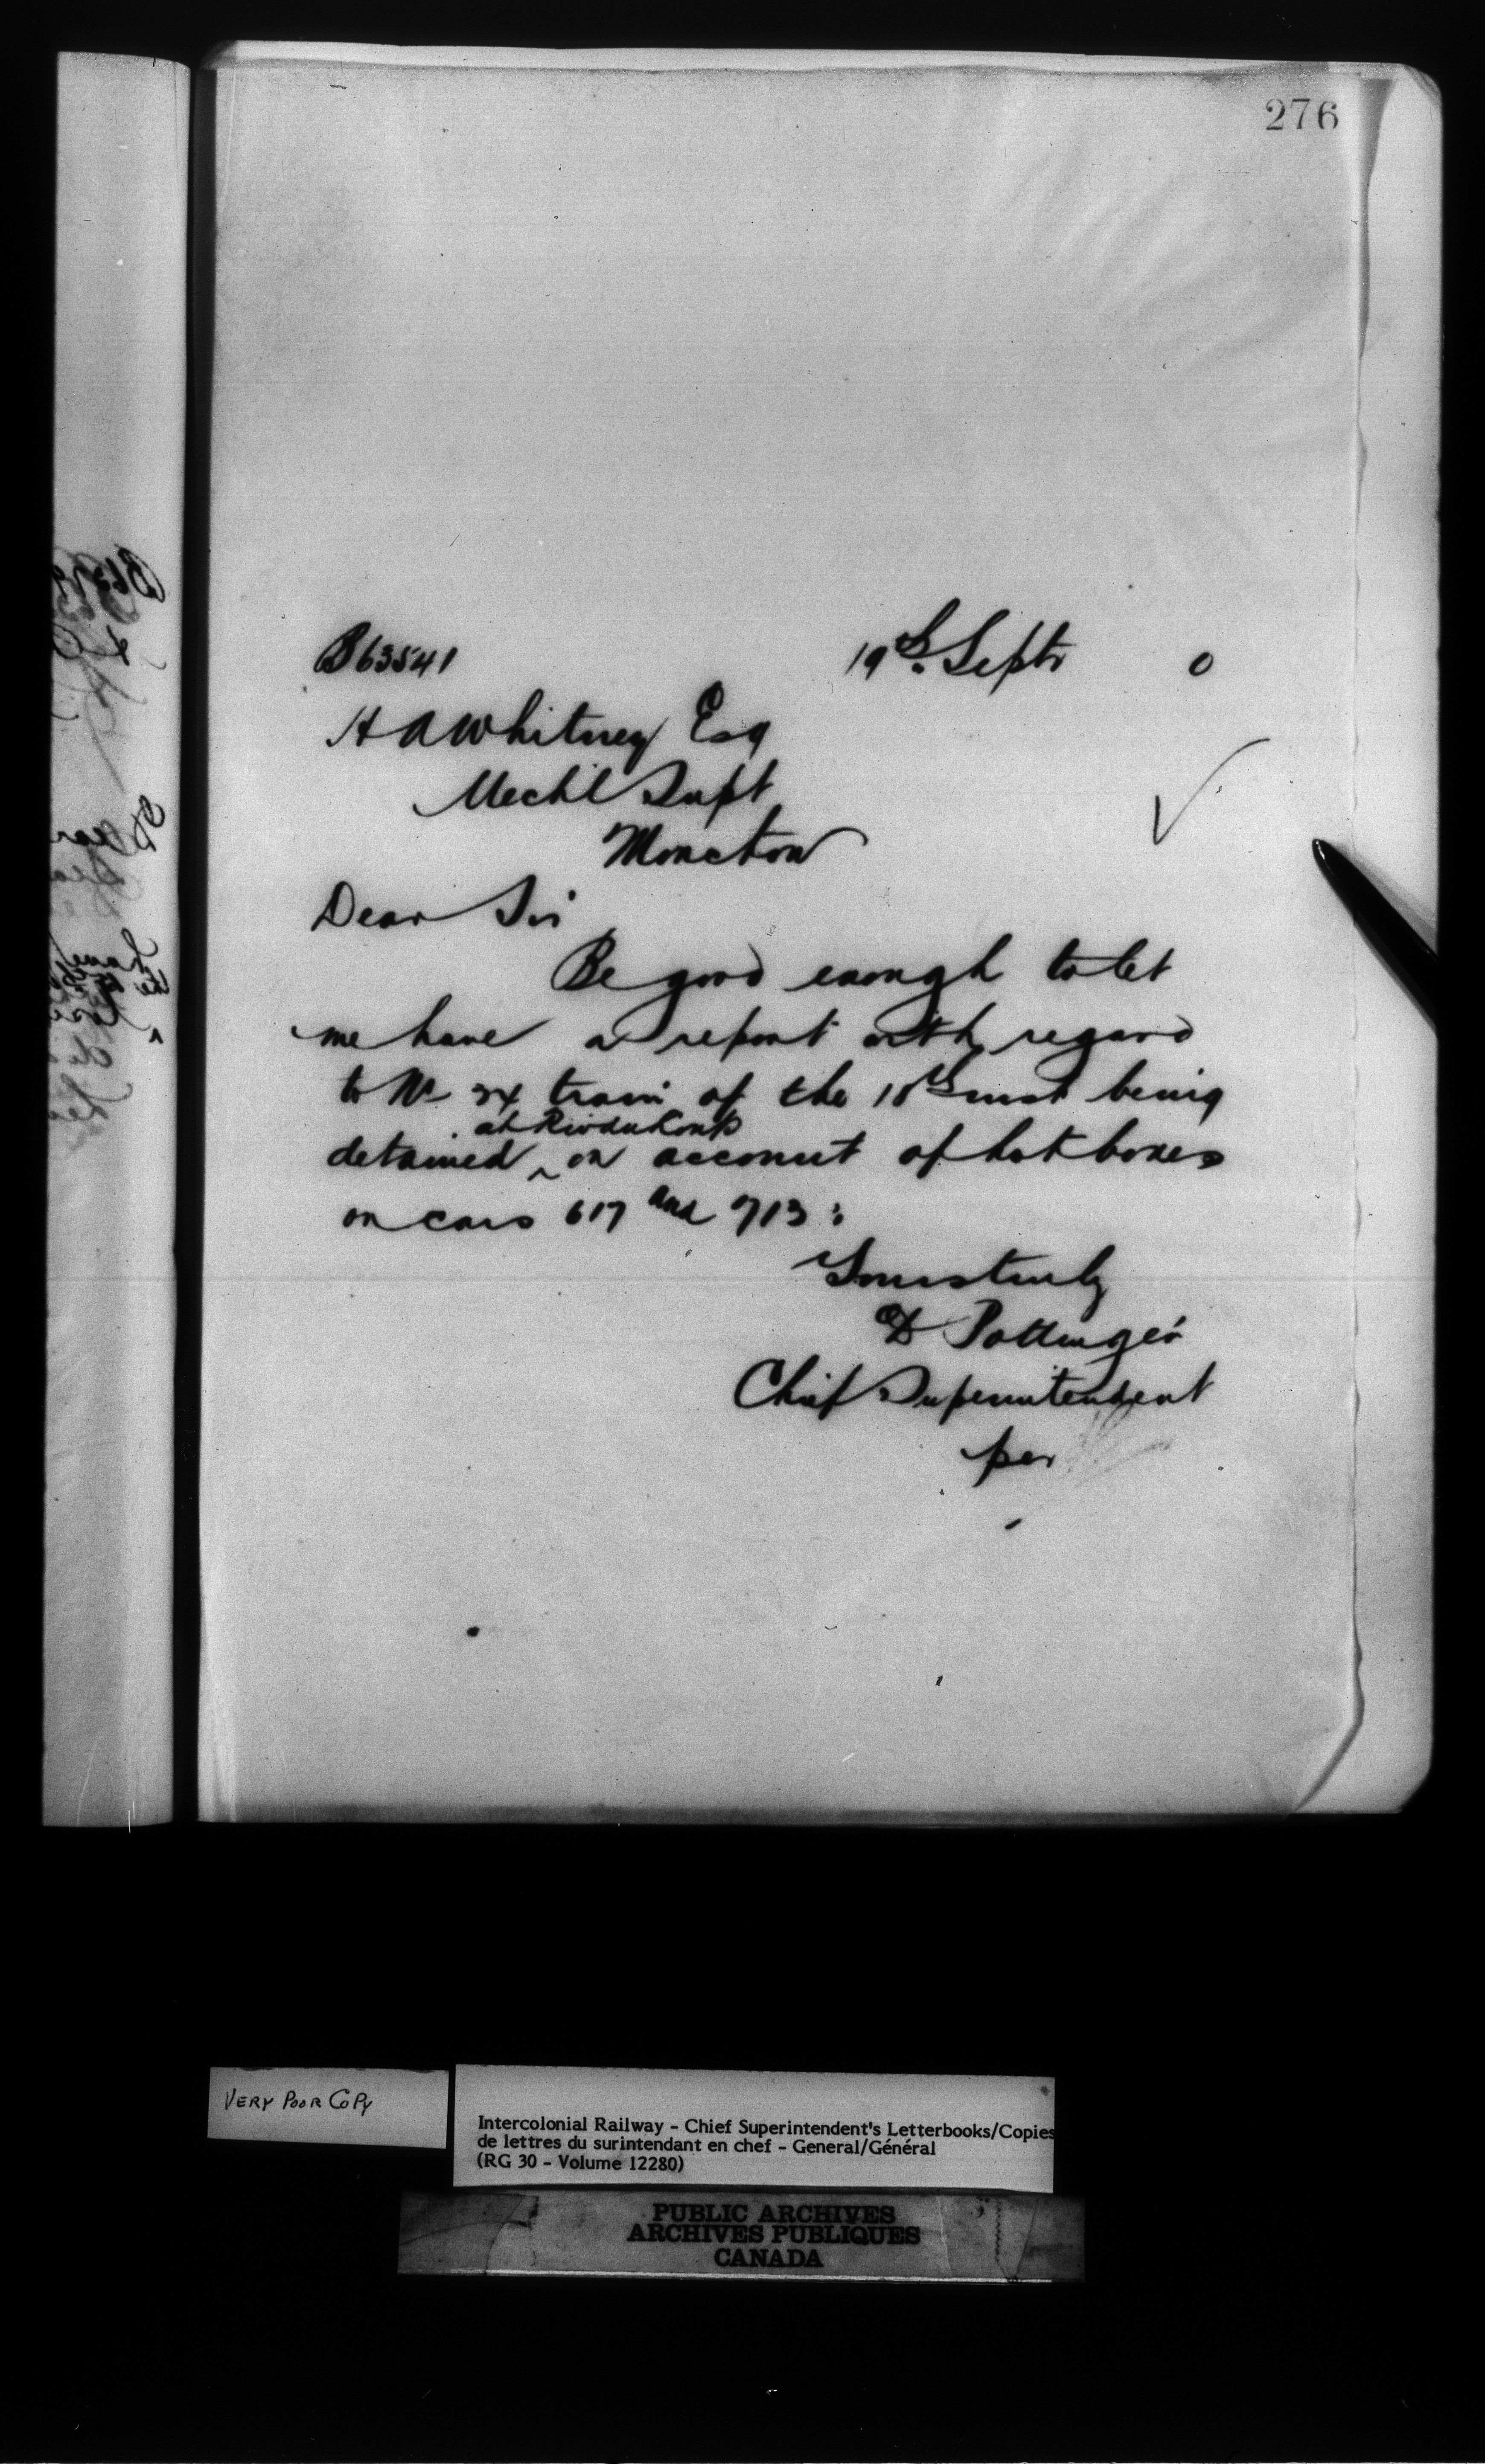 276
B63541 19th Septr 0
H A Whitney Esq
Mechl Supt
Moncton
Dear Sir
Be good enough to let
me have a report with regard
to No 34 train of the 18th inst being
at Riv du Loup
detained ^ on account of hot boxes
on cars 617 and 713:
Yours truly
D Pottinger
Chief Superintendent
per
VERY POOR COPY
Intercolonial Railway - Chief Superintendent's Letterbooks/Copies
de lettres du surintendant en chef - General/Général
(RG 30 - Volume 12280)
PUBLIC ARCHIVES
ARCHIVES PUBLIQUES
CANADA